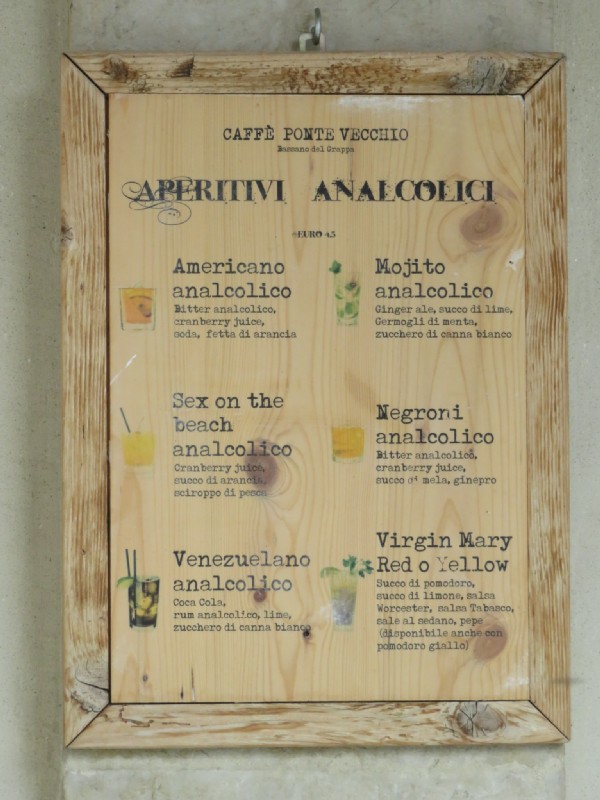 CAFFÈ PONTE VECCHIO
Bassano del Grappa
APERITIVI ANALCOLICI
EURO 4.5
Americano
analcolico
Bitter analcolico,
cranberry juice,
soda, fetta di arancia
Mojito
analcolico
Ginger ale, succo di lime,
Germogli di menta,
zucchero di canna bianco
Sex on the
beach
analcolico
Cranberry juice,
succo di arancia,
sciroppo di pesca
Negroni
analcolico
Bitter analcolico,
cranberry juice,
succo di mela, ginepro
Venezuelano
analcolico
Coca Cola,
rum analcolico, lime,
zucchero di canna bianco
Virgin Mary
Red o Yellow
Succo di pomodoro,
succo di limone, salsa
Worcester, salsa Tabasco,
sale al sedano, pepe
(disponibile anche con
pomodoro giallo)